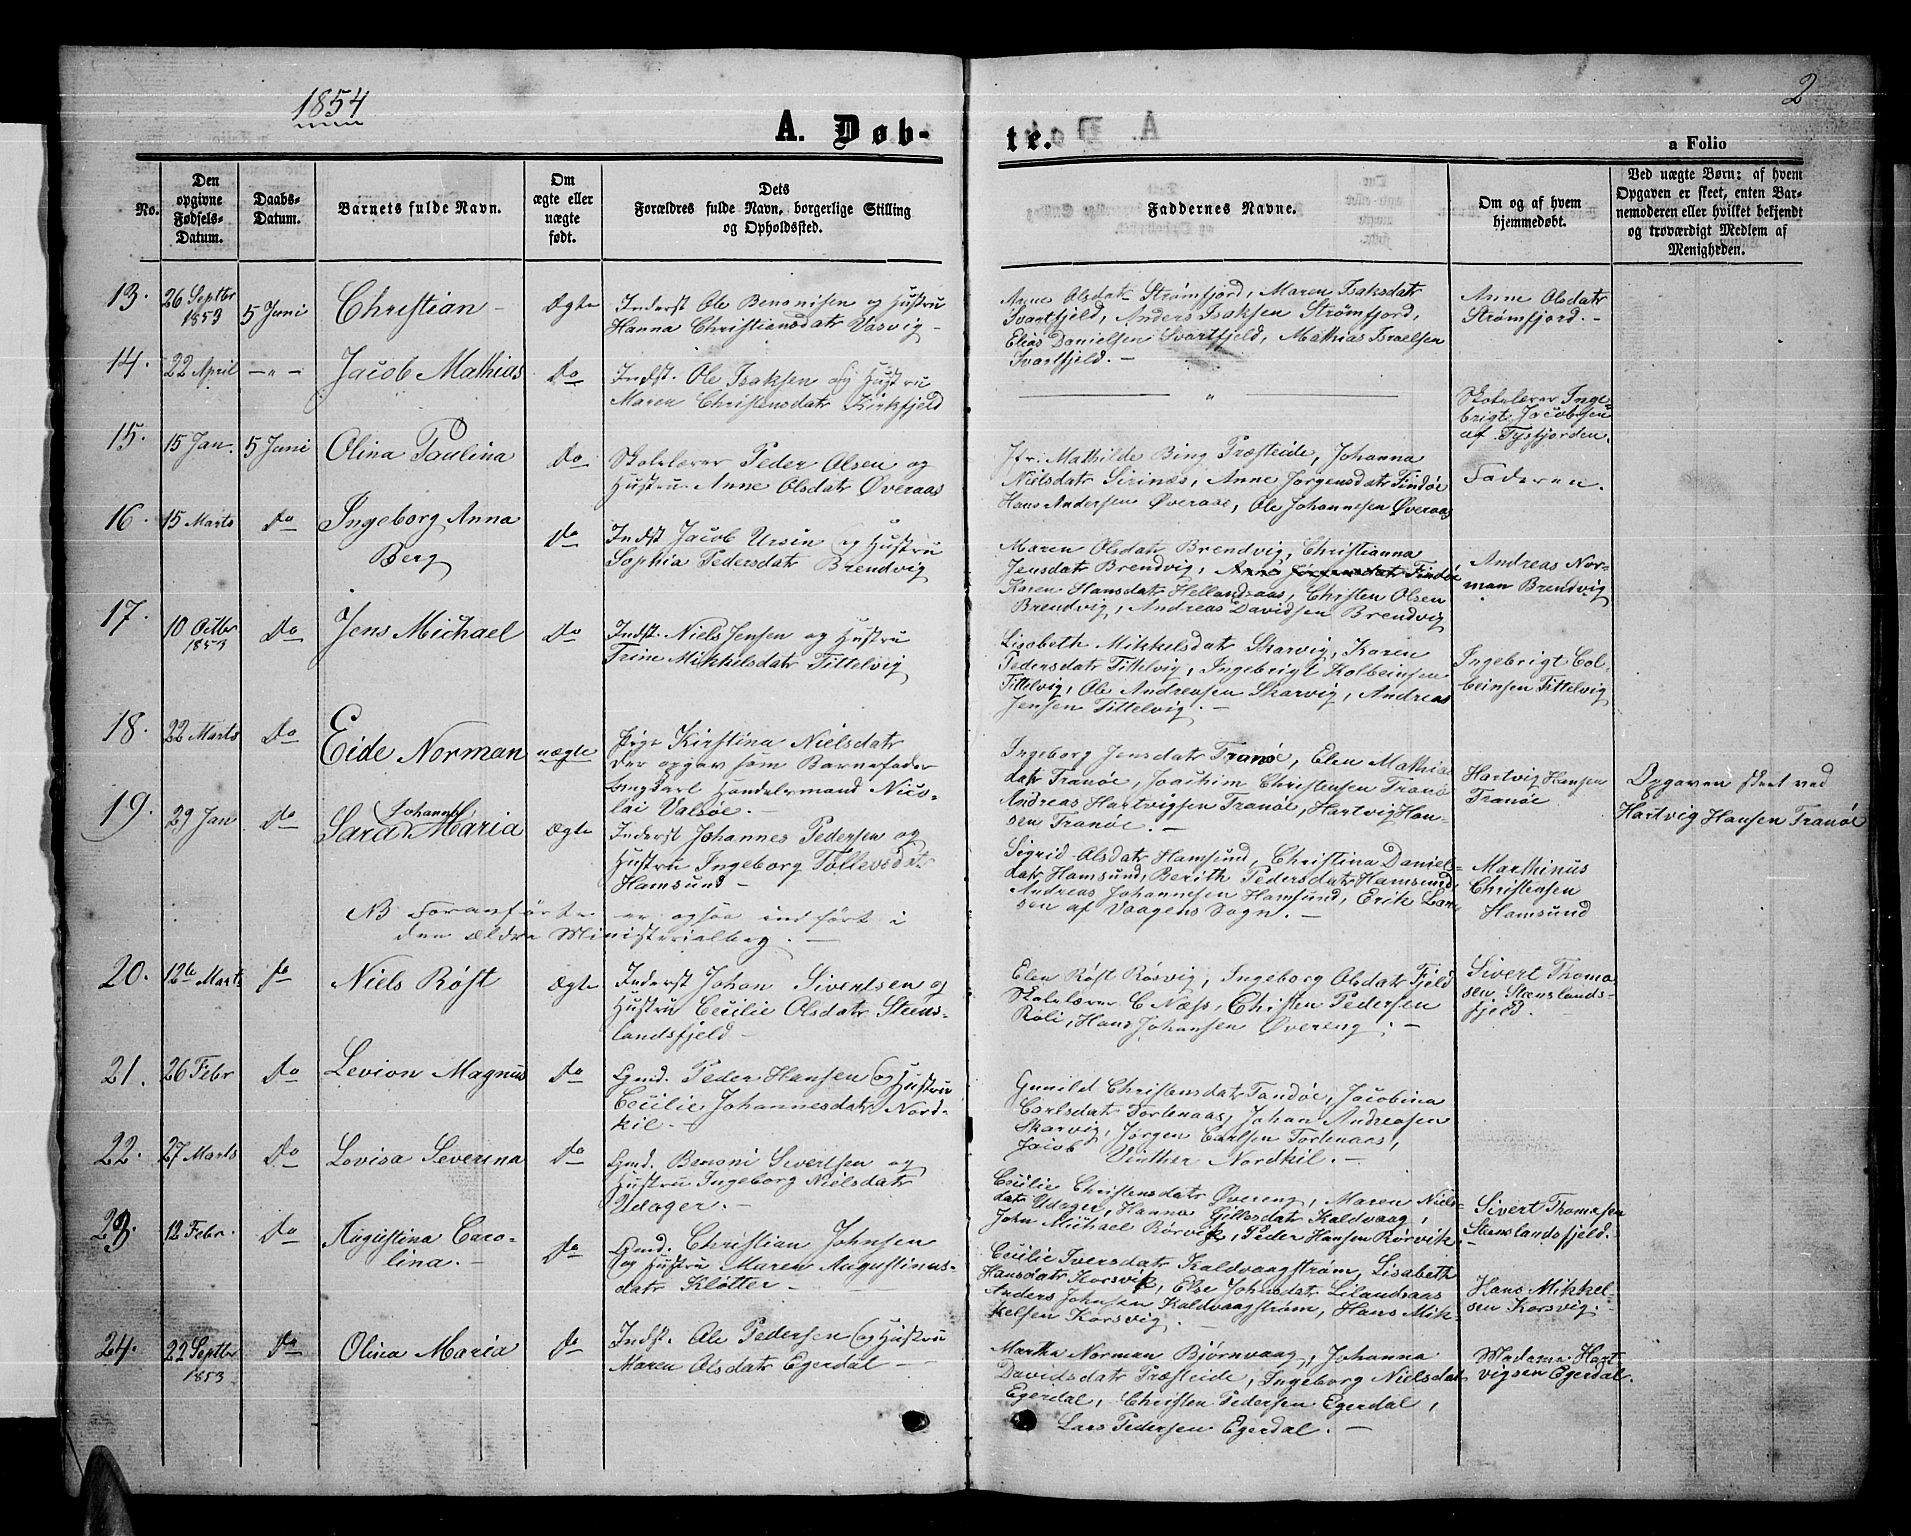 1854
2
A. Døb-
te.
a Folio
No.
Den
opgivne
Fødsels-
Datum.
Daabs-
Datum.
Barnets fulde Navn.
Om
ægte eller
uægte
født.
Dets
Forældres fulde Navn, borgerlige Stilling
og Opholdssted.
Faddernes Navne.
Om og af hvem
hjemmedøbt.
Ved uægte Børn: af hvem
Opgaven er skeet, enten Bar-
nemoderen eller hvilket bekjendt
og troværdigt Medlem af
Menigheden.
13.
26 Septbr
1853
5 Juni
Christian -
Ægte
Inderst Ole Benonisen og Hustru
Hanna Christiansdatr Vasvig -
Anne Olsdatr Strømfjord, Maren Isaksdatr
Svartfjeld, Anders Isaksen Strømfjord,
Elias Danielsen Svartfjeld, Mathias Israelsen
Svartfjeld. -
Anne Olsdatr
Strømfjord. -
14.
22 April
-"-
Jacob Mathias
Do
Indst. Ole Isaksen og Hustru
Maren Christensdatr Kirkfjeld
"
Skolelærer Inge-
brigt Jacobsen
af Tysfjorden.
15.
15 Jan.
5 Juni
Olina Paulina
Do
Skolelærer Peder Olsen og
Hustru Anne Olsdatr Øveraas
Jfr. Mathilde Bing Præsteide, Johanna
Nielsdatr Sirinæs, Anne Jørgensdatr Findøe
Hans Andersen Øveraas, Ole Johannesen Øveraas
Faderen.
16.
15 Marts
Do
Ingeborg Anna
Berg
Do
Indst Jacob Ursin og Hustru
Sophia Pedersdatr Brendvig
Maren Olsdatr Brendvig, Christianna
Jensdatr Brendvig, Anne Jørgensdatr Findøe
Karen Hansdatr Hellandsaas, Christen Olsen
Brendvig, Andreas Davidsen Brendvig
Andreas Nor-
man Brendvig
17.
10 Octbr
1853
Do
Jens Michael
Do
Indst. Niels Jensen og Hustru
Trine Mikkelsdatr Tittelvig
Lisabeth Mikkelsdatr Skarvig, Karen
Pedersdatr Tittelvig, Ingebrigt Kolbeinsen
Tittelvig, Ole Andreasen Skarvig, Andreas
Jensen Tittelvig. -
Ingebrigt Col-
beinsen Tittelvig
18.
22 Marts
Do
Eide Norman
uægte
Pige Kirstina Nielsdatr
der opgav som Barnefader
Ungkarl Handelsmand Nico-
lai Valsøe. -
Ingeborg Jensdatr Tranøe, Elen Mathias
datr Tranøe, Joachim Christensen Tranøe
Andreas Hartvigsen Tranøe, Hartvig Han-
sen Tranøe. -
Hartvig Hansen
Tranøe
Opgaven skeet ved
Hartvig Hansen Tranøe
19.
29 Jan
Do
Johanna
Sara Maria
Ægte
Inderst Johannes Pedersen og
Hustru Ingeborg Tollevsdatr
Hamsund -
Sigrid Olsdatr Hamsund, Christina Daniel-
datr Hamsund, Berith Pedersdatr Hamsund
Andreas Johannesen Hamsund, Erik Lar-
sen af Vaagens Sogn. -
Marthinus
Christensen
Hamsund
NB Foranførte er ogsaa indført i
den ældre Ministerialbog. -
20.
12te Marts
do
Niels Røst
Ægte
Inderst Johan Sivertsen og
Hustru Cecilie Olsdatr Steens-
landsfjeld -
Elen Røst Røsvig, Ingeborg Olsdatr Fjeld
Skolelærer C Næss, Christen Pedersen
Røli, Hans Johansen Øvereng. -
Sivert Thoma
sen Steenslands-
fjeld.
21.
26 Febr
Do
Levion Magnus
Do
Gmd. Peder Hansen og Hustru
Cecilie Johannesdatr Nord-
kil. -
Gunild Christensdatr Tandøe, Jacobina
Carlsdatr Tortenaas, Johan Andreasen
Skarvig, Jørgen Carlsen Tortenaas,
Jacob Vinther Nordkil. -
22.
27 Marts
Do
Lovisa Severina
Do
Gmd. Benoni Sivertsen og
Hustru Ingeborg Nielsdatr
Udager. -
Cecilie Christensdatr Øvereng, Maren Niels-
datr Udager, Hanna Gillesdatr Kaldvaag,
John Michael Rørvik, Peder Hansen Rørvik.
Sivert Thomasen
Steenslandsfjeld.
23.
12 Febr.
Do
Augustina Caro-
lina. -
Do
Gmd. Christian Johnsen
og Hustru Maren Augustinus-
datr Kløtter -
Cecilie Iversdatr Kaldvaagstrøm, Lisabeth
Hansdatr Korsvik, Else Johnsdatr Lilandsaas
Anders Johnsen Kaldvaagstrøm, Hans Mik-
kelsen Korsvig. -
Hans Mikkel-
sen Korsvig.
24.
22 Septbr
1853
Do
Olina Maria
do
Indst. Ole Pedersen og Hustru
Maren Olsdatr Egerdal -
Martha Norman Bjørnvaag, Johanna
Davidsdatr Præsteide, Ingeborg Nielsdatr
Egerdal, Christen Pedersen Egerdal,
Lars Pedersen Egerdal. -
Madame Hart-
vigsen Egerdal.